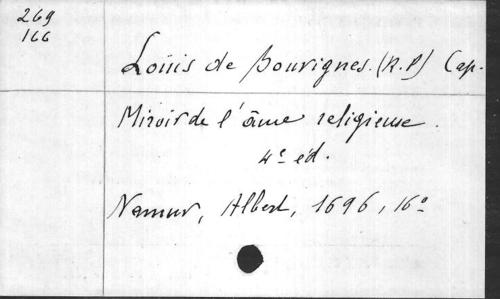 269
166
Louis de Bouvignes. (R.P) Cap.
Miroir de l'âme religieuse.
4e éd.
Namur, Albert, 1696, 16o